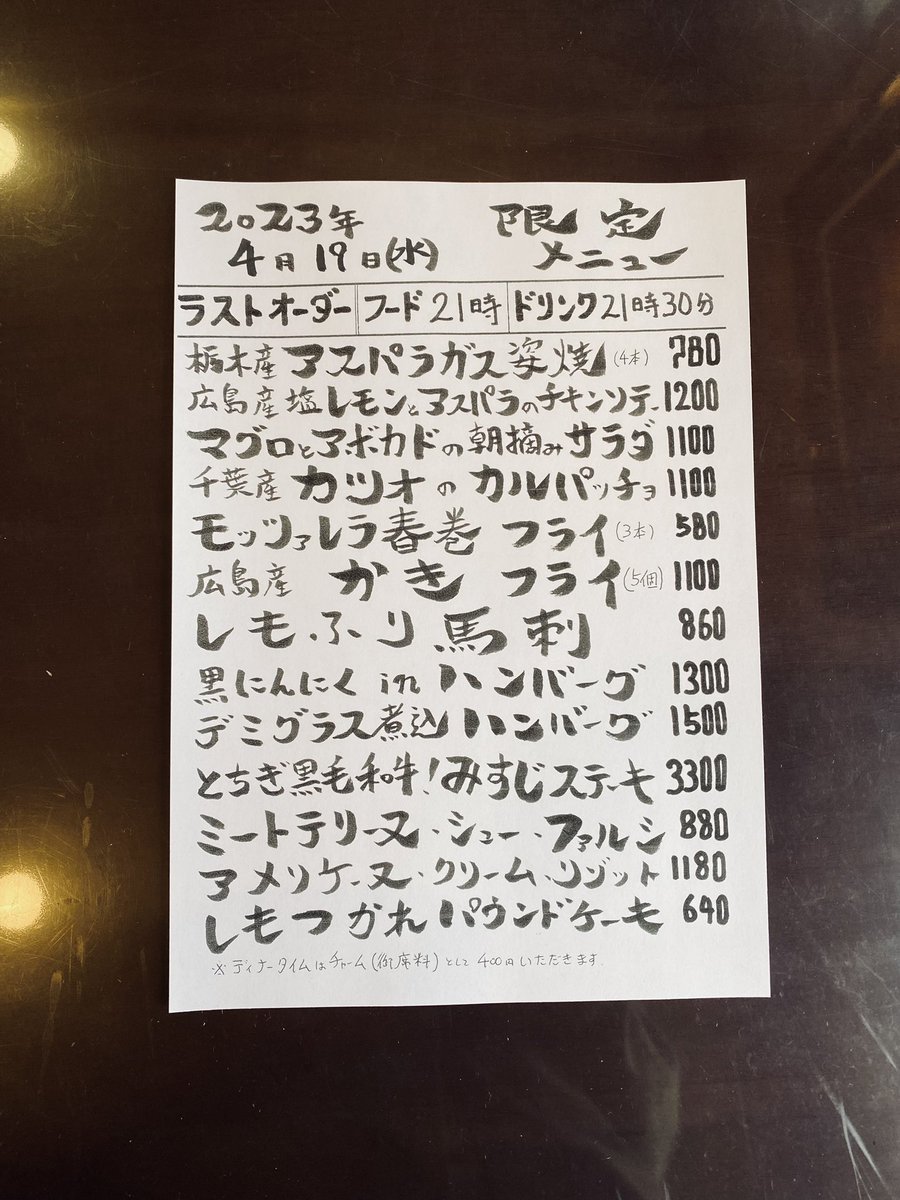 2023年 限定
4月19日(水) メニュー
ラストオーダー フード21時 ドリンク21時30分
栃木産アスパラガス姿焼(4本) 780
広島産塩レモンとアスパラのチキンソテー 1200
マグロとアボカドの朝摘みサラダ 1100
千葉産カツオのカルパッチョ 1100
モッツァレラ春巻フライ(3本) 580
広島産かきフライ(5個) 1100
しもふり馬刺 860
黒にんにくinハンバーグ 1300
デミグラス煮込ハンバーグ 1500
とちぎ黒毛和牛!みすじステーキ 3300
ミートテリーヌ・シュー・ファルシ 880
アメリケーヌ・クリーム・リゾット 1180
しもつかれパウンドケーキ 640
※ディナータイムはチャーム(御席料)として400円いただきます。